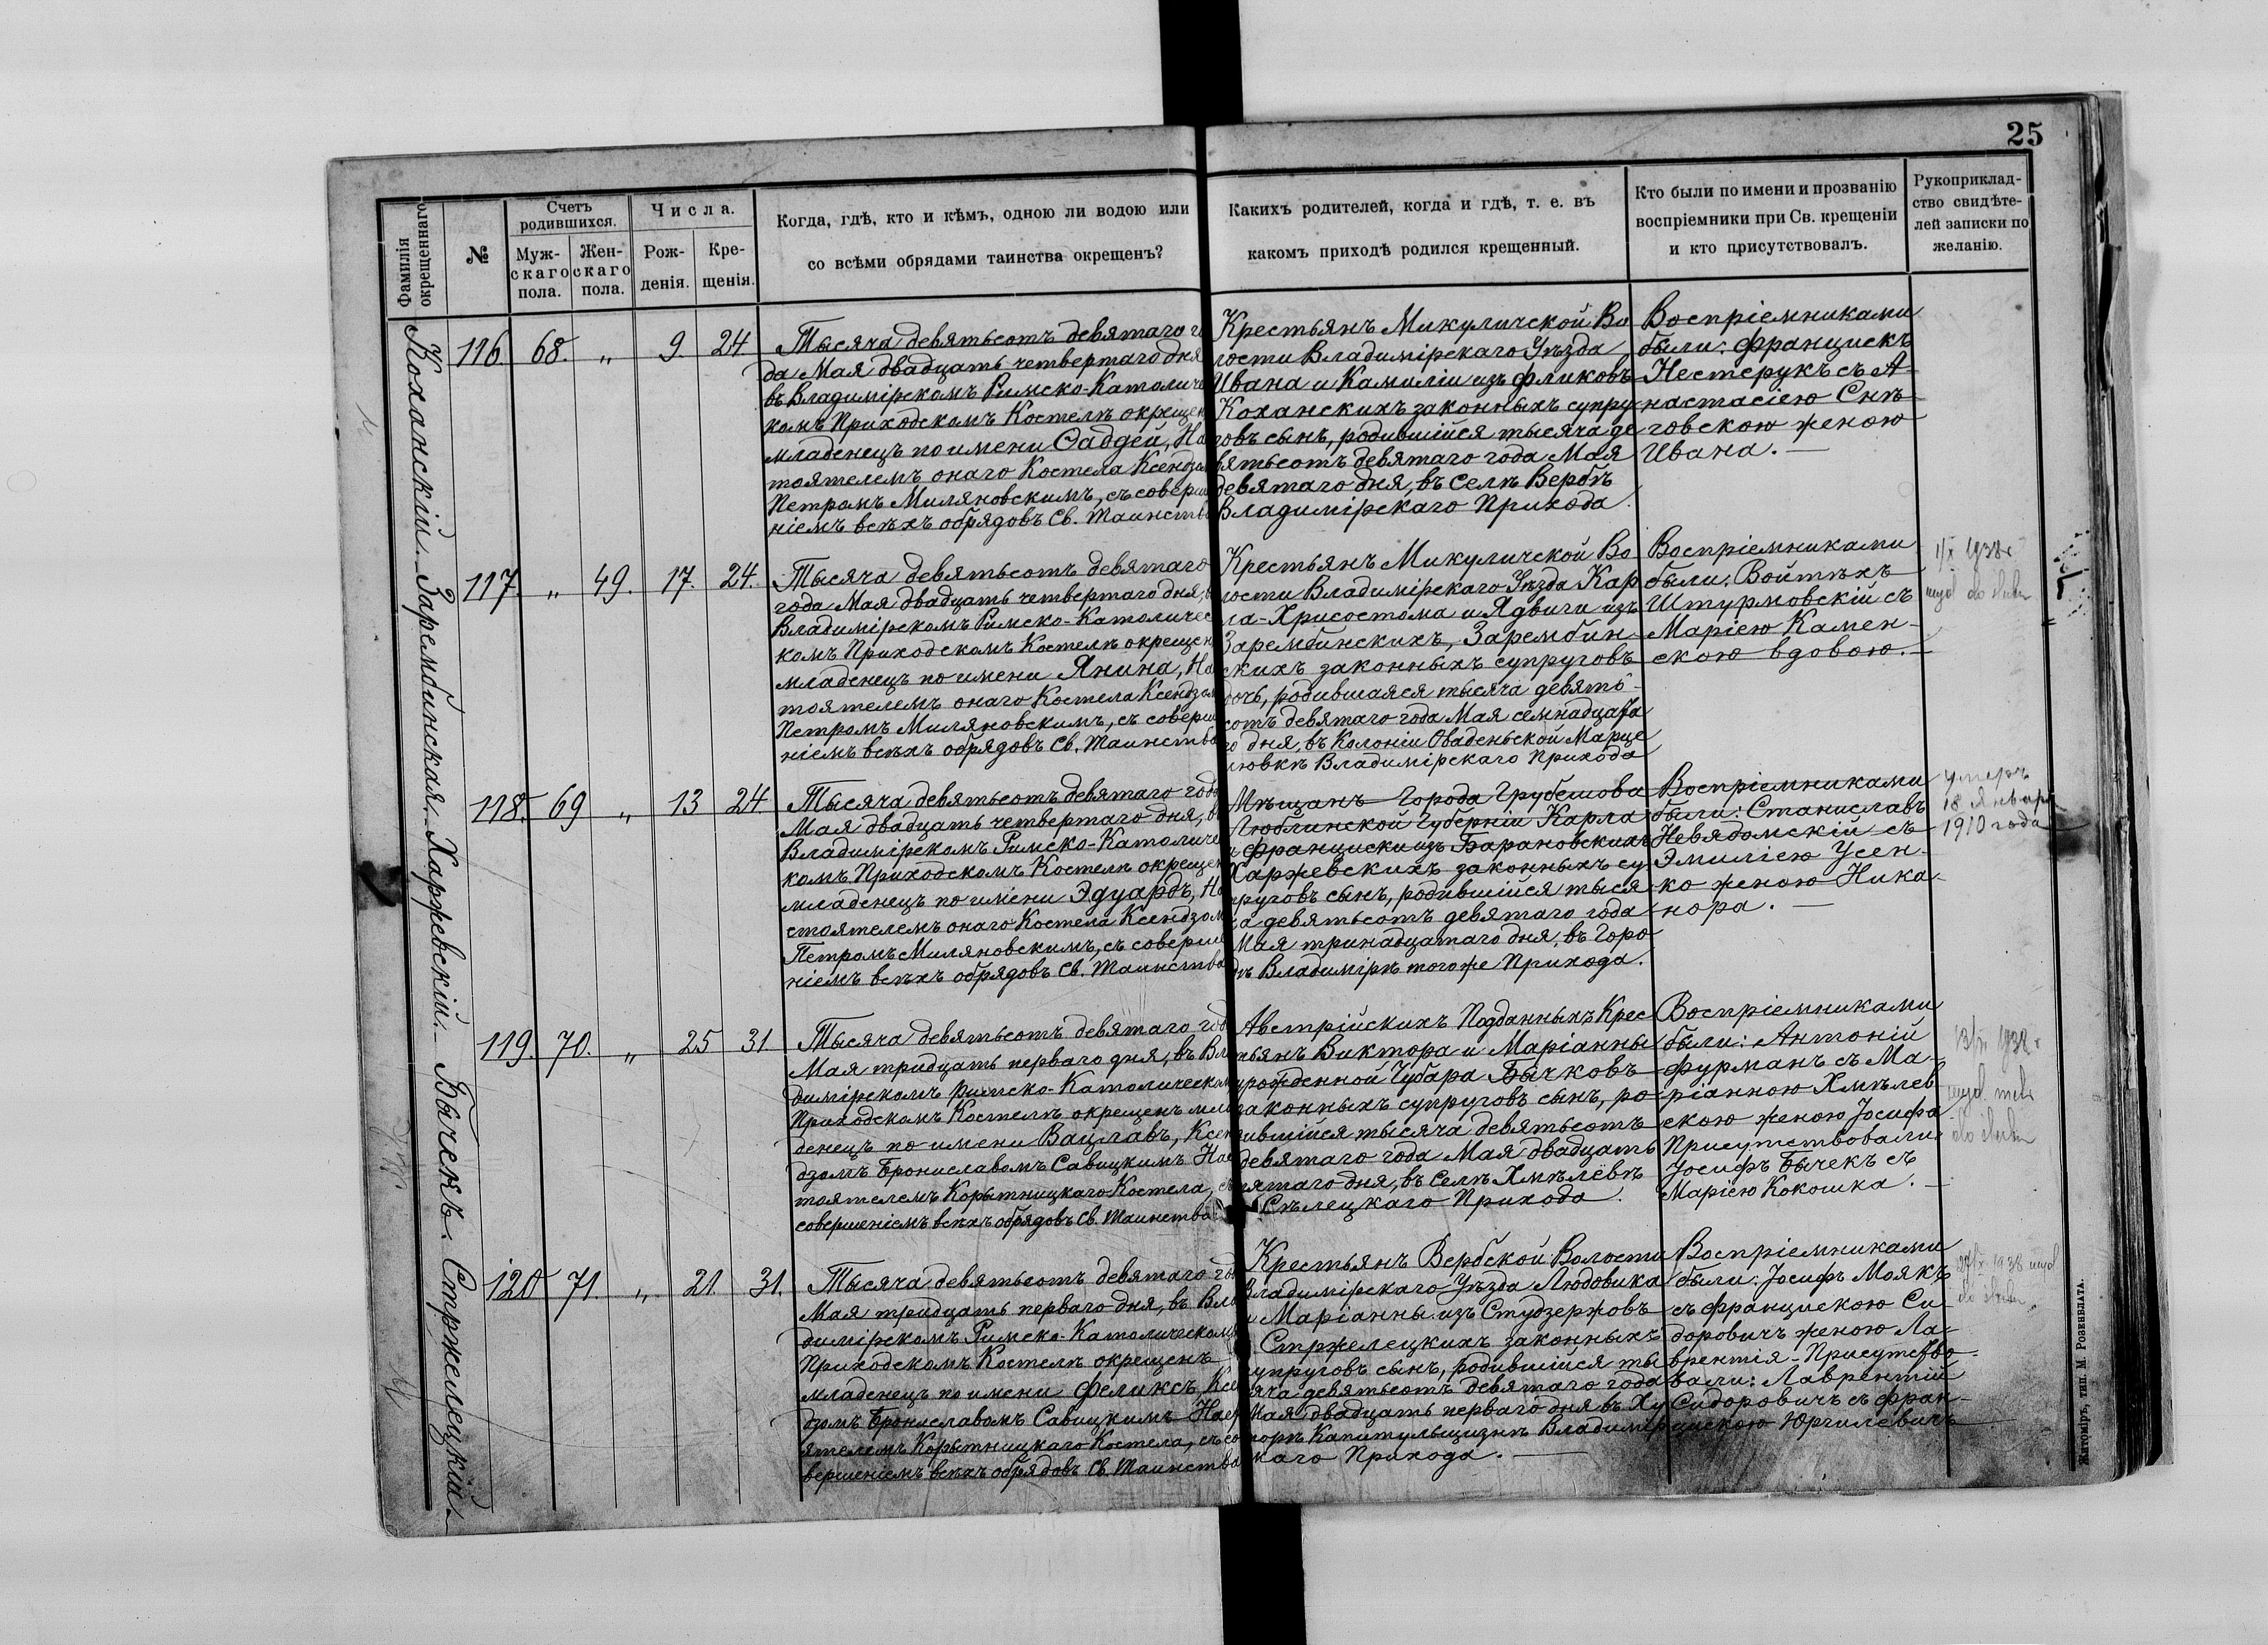 25
Фамилія окрещеннаго
№
Счетъ родившихся.
Муж-
скаго
пола.
Жен-
скаго
пола.
Числа.
Рож-
денія.
Кре-
щенія.
Когда, гдѣ, кто и кѣмъ, одною ли водою или
со всѣми обрядами таинства окрещенъ?
Какихъ родителей, когда и гдѣ, т. е. въ
какомъ приходѣ родился крещенный.
Кто были по имени и прозванію
воспріемники при Св. крещеніи
и кто присутствовалъ.
Рукоприклад-
ство свидѣте-
лей записки по
желанію.
Коханскій
116. 68. „ 9. 24
Тысяча девятьсотъ девятаго го
да Мая двадцать четвертаго дня
въ Владимірскомъ Римско-Католичес
комъ Приходскомъ Костелѣ окрещен
младенецъ по имени Фаддей, На
тоятелемъ онаго Костела Ксендзом
Петромъ Миляновскимъ, съ соверше
ніемъ всѣхъ обрядовъ Св. Таинства
Крестьянъ Микуличской Во
лости Владимірскаго Уѣзда
Ивана и Камиліи изъ Фликовъ
Коханскихъ законныхъ супру
говъ сынъ, родившійся тысяча де
вятьсотъ девятаго года Мая
девятаго дня, въ Селѣ Вербѣ
Владимірскаго Прихода.
Воспріемниками
были: Францискъ
Нестерукъ съ А-
настасіею Снѣ
говскою женою
Ивана. —
Зарембинская
117. „ 49. 17. 24.
Тысяча девятьсотъ девятаго
года Мая двадцать четвертаго дня, в
Владимірскомъ Римско-Католичес
комъ Приходскомъ Костелѣ окрещен
младенецъ по имени Янина, На
тоятелемъ онаго Костела Ксендзом
Петромъ Миляновскимъ, съ соверше
ніемъ всѣхъ обрядовъ Св. Таинства
Крестьянъ Микуличской Во
лости Владимірскаго Уѣзда Кар
ла-Хрисостома и Ядвиги изъ
Зарембинскихъ, Зарембин-
скихъ законныхъ супруговъ
дочь, родившаяся тысяча девять-
сотъ девятаго года Мая семнадцата
го дня, въ Колоніи Оваденьской Марце
ловкѣ Владимірскаго Прихода
Воспріемниками
были: Войтѣхъ
Штурмовскій съ
Маріею Камен-
скою вдовою. —
1/X 1938 r
wyd do ślubu
Харжевскій
118. 69 „ 13 24
Тысяча девятьсотъ девятаго года
Мая двадцать четвертаго дня, в
Владимірскомъ Римско-Католичес
комъ Приходскомъ Костелѣ окрещен
младенецъ по имени Эдуардъ, На
стоятелемъ онаго Костела Ксендзом
Петромъ Миляновскимъ, съ соверше
ніемъ всѣхъ обрядовъ Св. Таинства
Мѣщанъ Города Грубешова
Люблинской Губерніи Карла
и Франциски изъ Барановскихъ
Харжевскихъ законныхъ су
пруговъ сынъ, родившійся тыся
ча девятьсотъ девятаго года
Мая тринадцатаго дня, въ Горо
дѣ Владимірѣ того же Прихода.
Воспріемниками
были: Станиславъ
Невядомскій съ
Эмиліею Усен-
ко женою Ника-
нора. —
Умеръ
18 Января
1910 года
Бычекъ
119. 70. „ 25 31.
Тысяча девятьсотъ девятаго год
Мая тридцать перваго дня, въ Вла
димірскомъ Римско-Католическом
Приходскомъ Костелѣ окрещенъ мла
денецъ по имени Вацлавъ, Ксен
дзомъ Брониславомъ Савицкимъ Нас
тоятелемъ Корытницкаго Костела, съ
совершеніемъ всѣхъ обрядовъ Св. Таинства
Австрійскихъ Подданныхъ Крес
тьянъ Виктора и Маріанны
урожденной Чубара Бычковъ
законныхъ супруговъ сынъ, ро
дившійся тысяча девятьсотъ
девятаго года Мая двадцать
пятаго дня, въ Селѣ Хмѣлёвѣ
Сѣлецкаго Прихода.
Воспріемниками
были: Антоній
Фурманъ съ Ма-
ріанною Хмѣлев
скою женою Іосифа
Присутствовали:
Іосифъ Бычекъ съ
Маріею Кокошка. —
do ślubu
Стржелецкій
120 71 „ 21. 31.
Тысяча девятьсотъ девятаго год
Мая тридцать перваго дня, въ Вла
димірскомъ Римско-Католическом
Приходскомъ Костелѣ окрещенъ
младенецъ по имени Феликсъ, Ксен
дзомъ Брониславомъ Савицкимъ Наст
ятелемъ Корытницкаго Костела, съ со
вершеніемъ всѣхъ обрядовъ Св. Таинства
Крестьянъ Вербской Волости
Владимірскаго Уѣзда Людовика
и Маріанны изъ Студзержовъ
Стржелецкихъ законныхъ
супруговъ сынъ, родившійся ты
сяча девятьсотъ девятаго года
Мая двадцать перваго дня въ Ху
торѣ Капитульщизнѣ Владимір
скаго Прихода. —
Воспріемниками
были: Іосифъ Моякъ
съ Францискою Си
доровичъ женою Ла-
врентія - Присутство-
вали: Лаврентій
Сидоровичъ съ Фран-
цискою Юргилевичъ
1938 wyd
do ślubu
Житоміръ, тип. М. Розенблата.